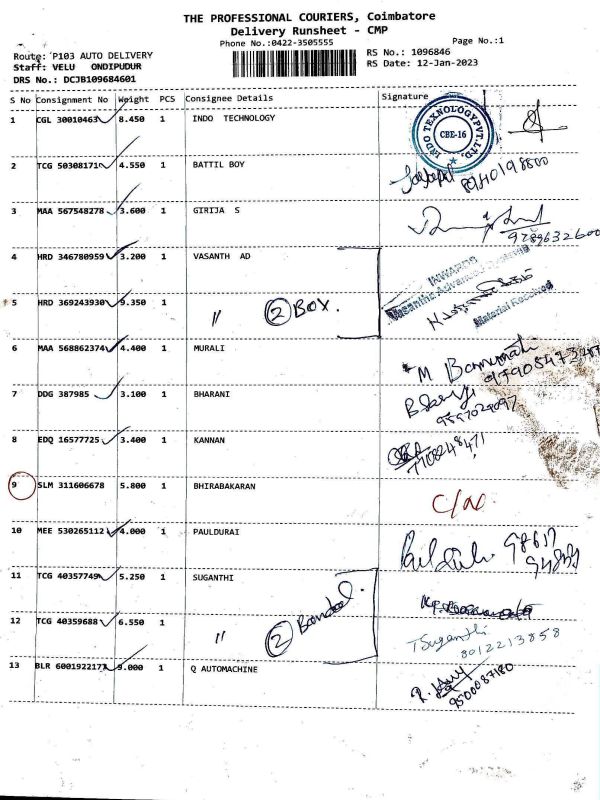 THE PROFESSIONAL COURIERS, Coimbatore
Delivery Runsheet - CMP
Phone No.:0422-3505555
Page No.:1
Route: P103 AUTO DELIVERY
Staff: VELU ONDIPUDUR
DRS No.: DCJB109684601
RS No.: 1096846
RS Date: 12-Jan-2023
S No Consignment No Weight PCS Consignee Details Signature
1 CGL 30010463 8.450 1 INDO TECHNOLOGY
INDO TEXNOLOGY PVT.LTD.
CBE-16
2 TCG 50308171 4.550 1 BATTIL BOY
8940198800
3 MAA 567548278 3.600 1 GIRIJA S
9789632600
4 HRD 346780959 3.200 1 VASANTH AD
INWARDS
Vasantha Advanced Systems
Material Received
5 HRD 369243930 9.350 1 〃 2 BOX.
6 MAA 568862374 4.400 1 MURALI
M
7 DDG 387985 3.100 1 BHARANI
9597029097
8 EDQ 16577725 3.400 1 KANNAN
9 SLM 311606678 5.800 1 BHIRABAKARAN
10 MEE 530265112 4.000 1 PAULDURAI
98617
11 TCG 40357749 5.250 1 SUGANTHI
12 TCG 40359688 6.550 1 〃 2
TSuganthi
8012213858
13 BLR 600192217 9.000 1 Q AUTOMACHINE
9500087180